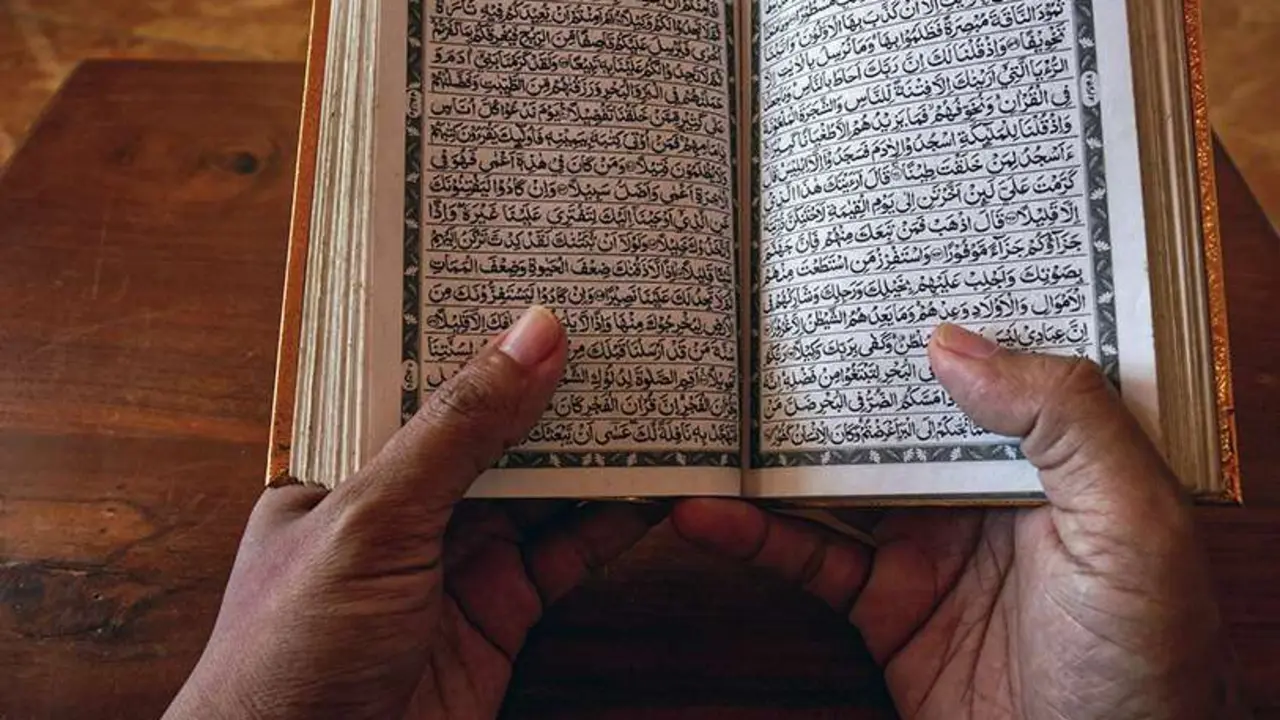 اَنْ كَذَّبَ بِهَا الْاَوَّلُوْنَ وَاٰتَيْنَا
ثَمُوْدَ النَّاقَةَ مُبْصِرَةً فَظَلَمُوْا بِهَا وَمَا نُرْسِلُ بِالْاٰيٰتِ اِلَّا
تَخْوِيْفًا وَاِذْ قُلْنَا لَكَ اِنَّ رَبَّكَ اَحَاطَ بِالنَّاسِ وَمَا جَعَلْنَا
الرُّءْيَا الَّتِيْٓ اَرَيْنٰكَ اِلَّا فِتْنَةً لِّلنَّاسِ وَالشَّجَرَةَ الْمَلْعُوْنَةَ
فِى الْقُرْاٰنِ وَنُخَوِّفُهُمْ فَمَا يَزِيْدُهُمْ اِلَّا طُغْيَانًا كَبِيْرًا
وَاِذْ قُلْنَا لِلْمَلٰٓئِكَةِ اسْجُدُوْا لِاٰدَمَ فَسَجَدُوْٓا اِلَّآ اِبْلِيْسَ قَالَ
ءَاَسْجُدُ لِمَنْ خَلَقْتَ طِيْنًا قَالَ اَرَءَيْتَكَ هٰذَا الَّذِيْ
كَرَّمْتَ عَلَيَّ لَئِنْ اَخَّرْتَنِ اِلٰى يَوْمِ الْقِيٰمَةِ لَاَحْتَنِكَنَّ ذُرِّيَّتَهٗٓ
اِلَّا قَلِيْلًا قَالَ اذْهَبْ فَمَنْ تَبِعَكَ مِنْهُمْ فَاِنَّ جَهَنَّمَ
جَزَآؤُكُمْ جَزَآءً مَّوْفُوْرًا وَاسْتَفْزِزْ مَنِ اسْتَطَعْتَ مِنْهُمْ
بِصَوْتِكَ وَاَجْلِبْ عَلَيْهِمْ بِخَيْلِكَ وَرَجِلِكَ وَشَارِكْهُمْ فِى
الْاَمْوَالِ وَالْاَوْلَادِ وَعِدْهُمْ وَمَا يَعِدُهُمُ الشَّيْطٰنُ اِلَّا غُرُوْرًا
اِنَّ عِبَادِيْ لَيْسَ سُلْطٰنٌ وَكَفٰى بِرَبِّكَ وَكِيْلًا
الْبَحْرِ لِتَبْتَغُوْا مِنْ فَضْلِهٖ اِنَّهٗ
مَسَّكُمُ الضُّرُّ فِى الْبَحْرِ ضَلَّ مَنْ
اِلَى الْبَرِّ اَعْرَضْتُمْ وَكَانَ الْاِنْسَانُ كَفُوْرًا
لَكُمْ وَكِيْلًا اَمْ اَمِنْتُمْ اَنْ يُّعِيْدَكُمْ فِيْهِ تَارَةً
اُخْرٰى فَيُرْسِلَ عَلَيْكُمْ قَاصِفًا مِّنَ الرِّيْحِ فَيُغْرِقَكُمْ بِمَا كَفَرْتُمْ
ثُمَّ لَا تَجِدُوْا لَكُمْ عَلَيْنَا بِهٖ تَبِيْعًا وَلَقَدْ كَرَّمْنَا بَنِيْٓ اٰدَمَ وَ
حَمَلْنٰهُمْ فِى الْبَرِّ وَالْبَحْرِ وَرَزَقْنٰهُمْ مِّنَ الطَّيِّبٰتِ وَفَضَّلْنٰهُمْ
عَلٰى كَثِيْرٍ مِّمَّنْ خَلَقْنَا تَفْضِيْلًا يَوْمَ نَدْعُوْا كُلَّ اُنَاسٍ
بِاِمَامِهِمْ فَمَنْ اُوْتِيَ كِتٰبَهٗ بِيَمِيْنِهٖ فَاُولٰٓئِكَ يَقْرَءُوْنَ كِتٰبَهُمْ
وَلَا يُظْلَمُوْنَ فَتِيْلًا وَمَنْ كَانَ فِيْ هٰذِهٖٓ اَعْمٰى فَهُوَ فِى
الْاٰخِرَةِ اَعْمٰى وَاَضَلُّ سَبِيْلًا وَاِنْ كَادُوْا لَيَفْتِنُوْنَكَ
عَنِ الَّذِيْٓ اَوْحَيْنَآ اِلَيْكَ لِتَفْتَرِيَ عَلَيْنَا غَيْرَهٗ وَاِذًا
لَّاتَّخَذُوْكَ خَلِيْلًا وَلَوْلَآ اَنْ ثَبَّتْنٰكَ لَقَدْ كِدْتَّ تَرْكَنُ اِلَيْهِمْ
شَيْئًا قَلِيْلًا اِذًا لَّاَذَقْنٰكَ ضِعْفَ الْحَيٰوةِ وَضِعْفَ الْمَمَاتِ
ثُمَّ لَا تَجِدُ لَكَ عَلَيْنَا نَصِيْرًا وَاِنْ كَادُوْا لَيَسْتَفِزُّوْنَكَ مِنَ
الْاَرْضِ لِيُخْرِجُوْكَ مِنْهَا وَاِذًا لَّا اِلَّا قَلِيْلًا
سُنَّةَ مَنْ قَدْ اَرْسَلْنَا قَبْلَكَ مِنْ لِسُنَّتِنَا
تَحْوِيْلًا اَقِمِ الصَّلٰوةَ لِدُلُوْكِ الشَّمْسِ
الْفَجْرِ اِنَّ قُرْاٰنَ الْفَجْرِ كَانَ
فَتَهَجَّدْ بِهٖ نَافِلَةً لَّكَ عَسٰٓى اَنْ يَّبْعَثَكَ